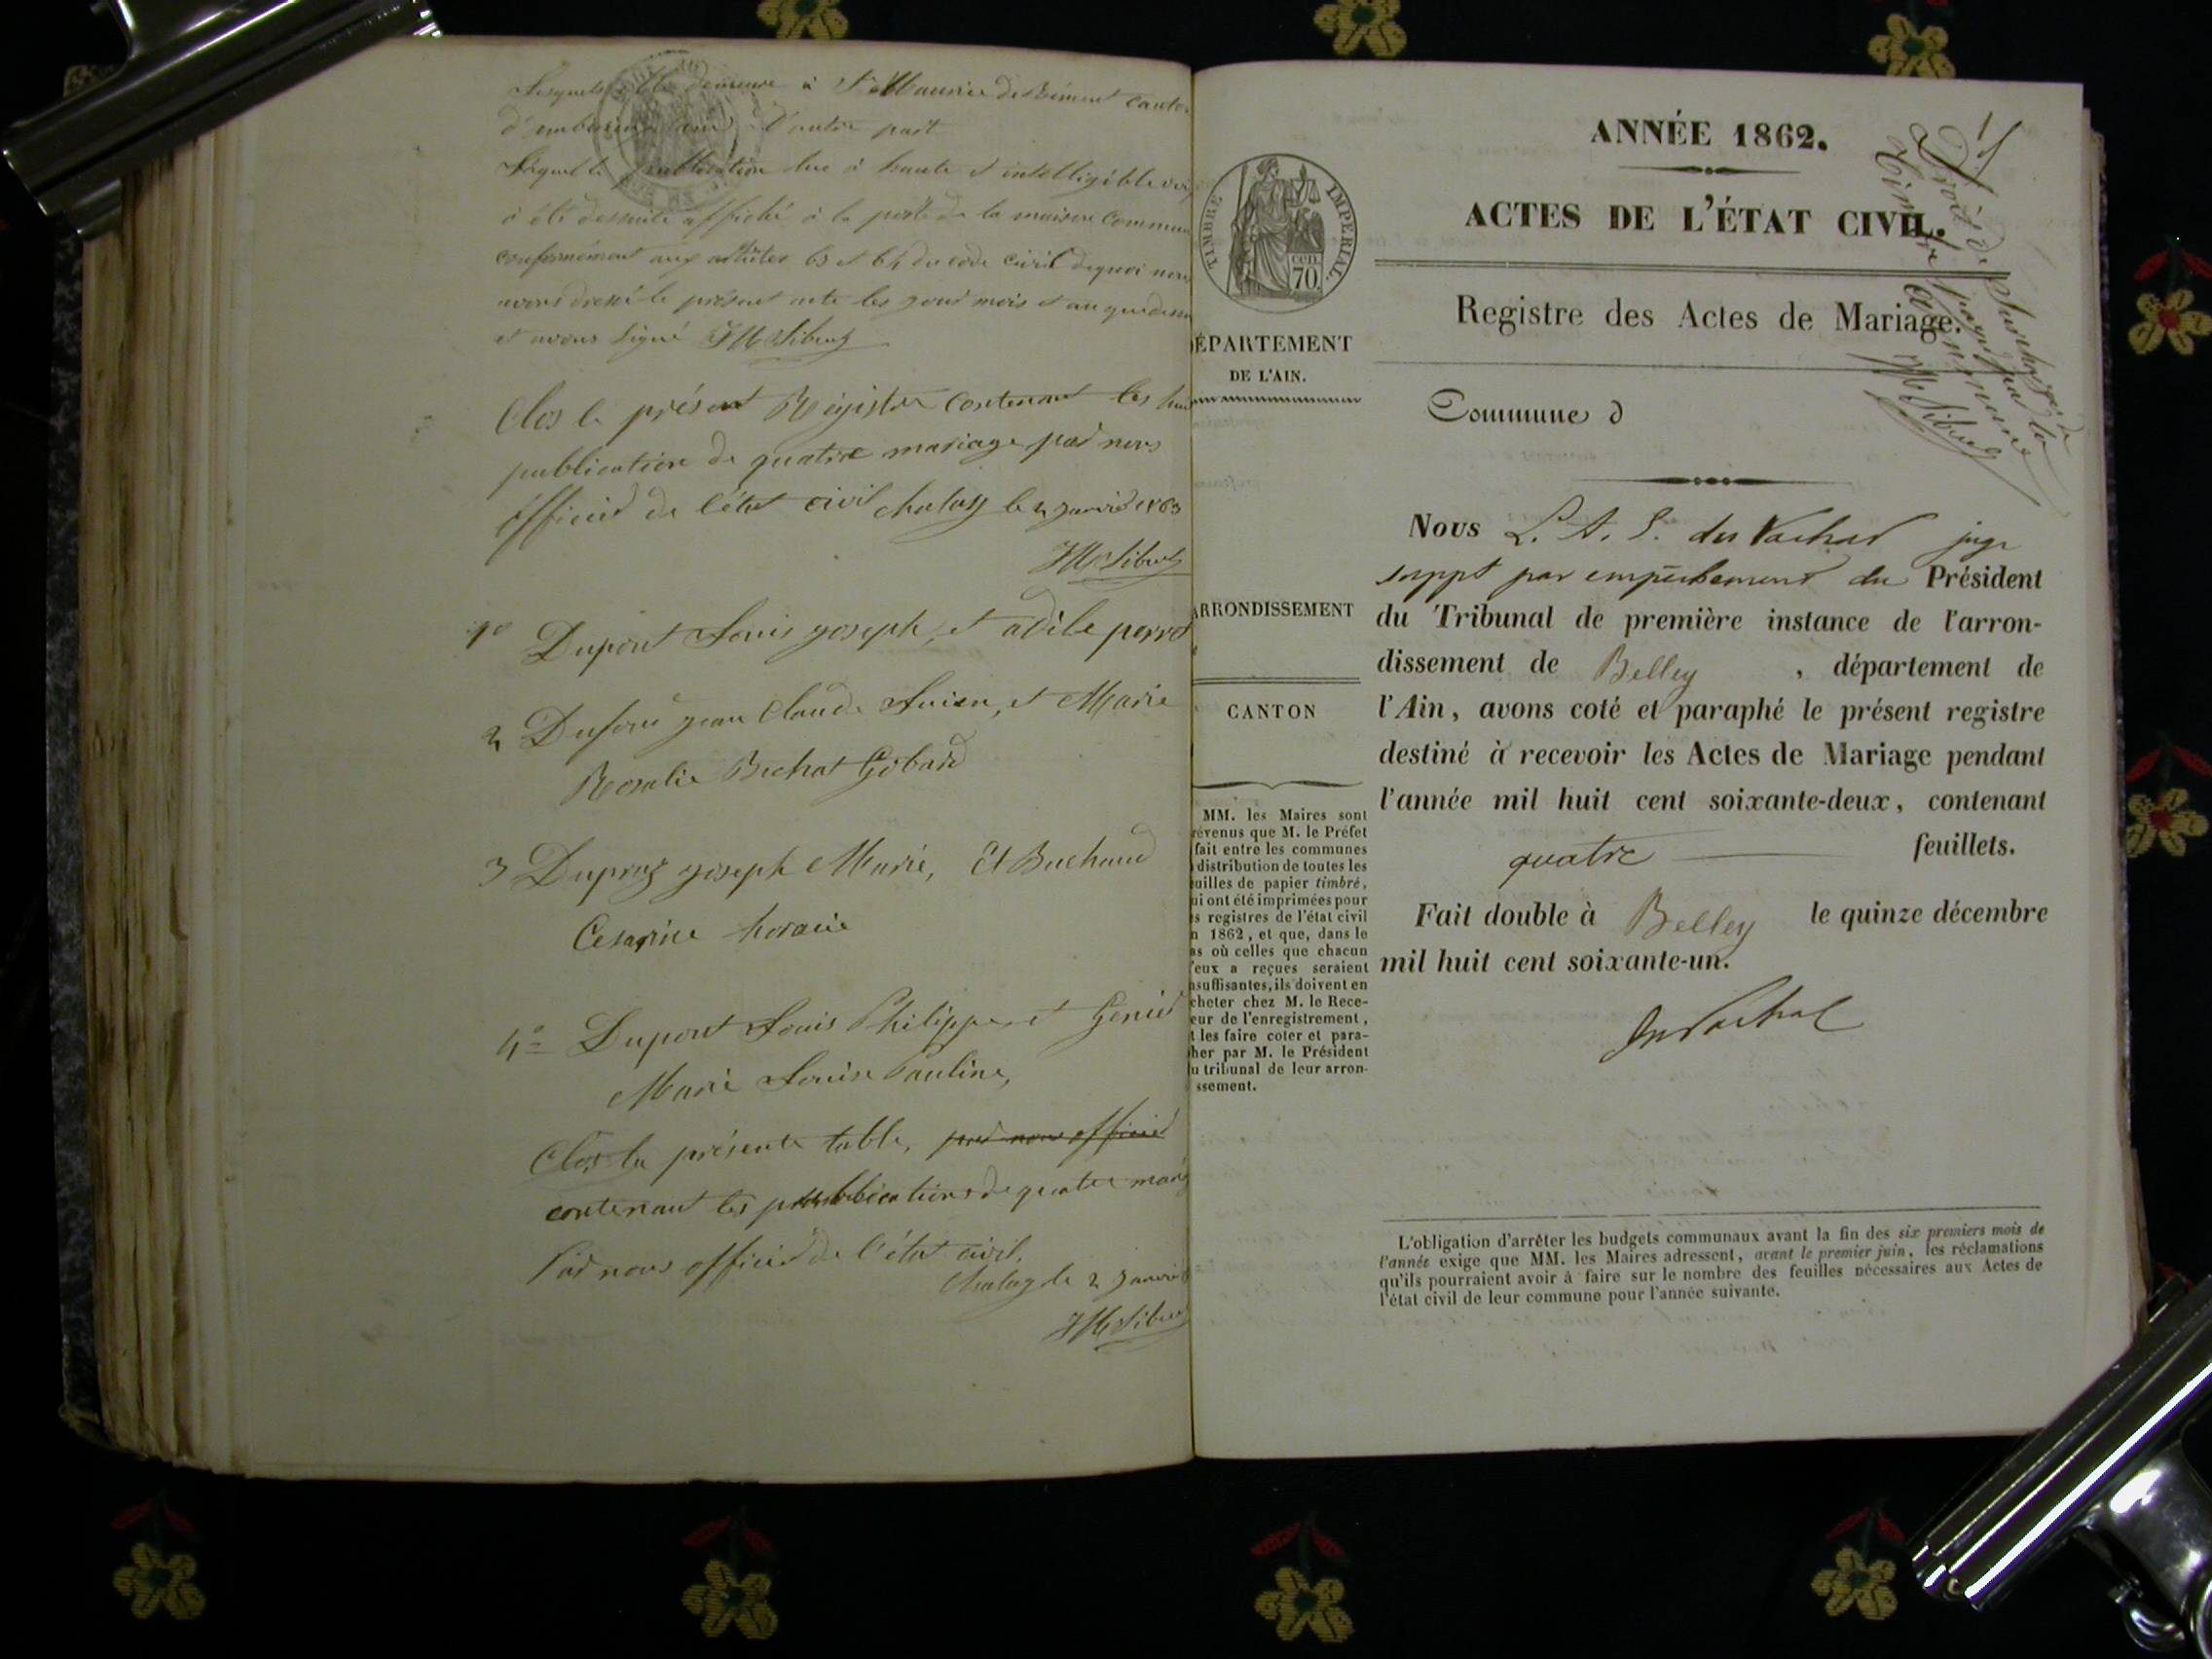 demeure à St Maurice de Rémens canton
d'autre part
publication lue à haute et intelligible voix
a été de suite affiché à la porte de la maison Commun
conformément aux articles 63 et 64 du code civil de quoi nous
avons dressé le présent acte les jour mois et an que dessus
et avons signé JM Sibuet
Clos le présent Régistre contenant les huit
publication de quatre mariage par nous
officier de l'état civil Chaley le 2 janvier 1863
JM Sibuet
1º Dupont Louis joseph, et adèle perret
2 Dufour jean Claude Lucien, et Marie
Rosalie Bichat Gobard
3 Dupraz joseph Marie, Et Buchaud
Cesarine horacie
4º Dupont Louis Philippe et Genier
Marie Louise Pauline,
Clos la présente table, par nous officier
contenant les publications de quatre maria
Par nous officier de l'état civil.
Chaley le 2 janvier
JM Sibuet
TIMBRE IMPERIAL.
CEN. 70.
ÉPARTEMENT
DE L'AIN.
ARRONDISSEMENT
CANTON
MM. les Maires sont
révenus que M. le Préfet
fait entre les communes
distribution de toutes les
uilles de papier timbré,
ui ont été imprimées pour
s registres de l'état civil
n 1862, et que, dans le
as où celles que chacun
'eux a reçues seraient
nsuffisantes, ils doivent en
cheter chez M. le Rece-
eur de l'enregistrement,
t les faire coter et para-
her par M. le Président
u tribunal de leur arron-
ssement.
ANNÉE 1862.
ACTES DE L'ÉTAT CIVIL.
Registre des Actes de Mariage.
Droits de Surcharges de
timbre payé par la
commune
M. Sibuet
Commune d
Nous L. A. S. du Vachat juge
suppt par empêchement du Président
du Tribunal de première instance de l'arron-
dissement de Belley, département de
l'Ain, avons coté et paraphé le présent registre
destiné à recevoir les Actes de Mariage pendant
l'année mil huit cent soixante-deux, contenant
quatre feuillets.
Fait double à Belley le quinze décembre
mil huit cent soixante-un.
du Vachat
L'obligation d'arrêter les budgets communaux avant la fin des six premiers mois de
l'année exige que MM. les Maires adressent, avant le premier juin, les réclamations
qu'ils pourraient avoir à faire sur le nombre des feuilles nécessaires aux Actes de
l'état civil de leur commune pour l'année suivante.